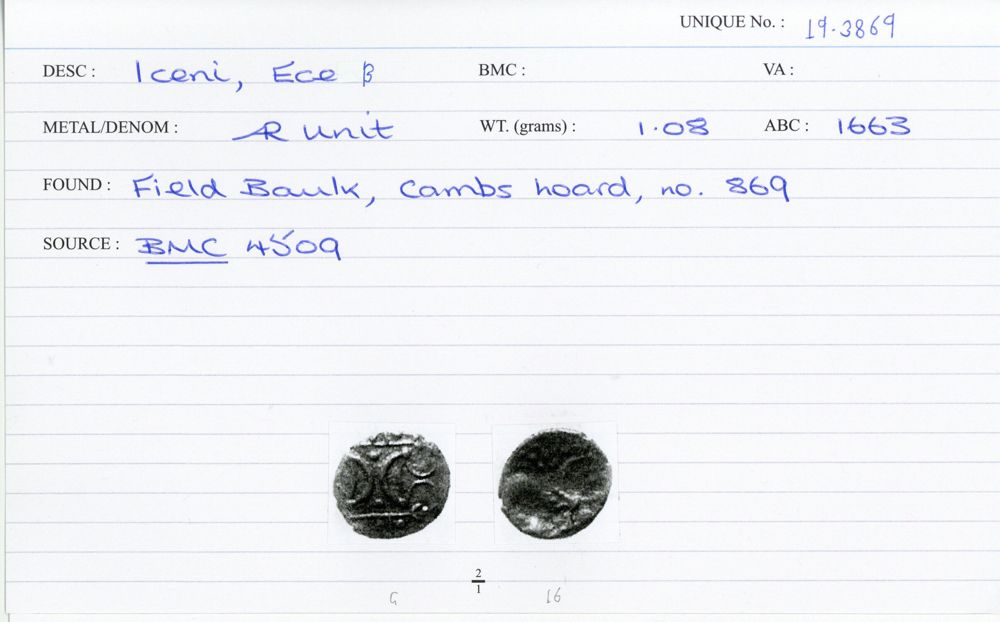 UNIQUE No. : 19.3869
DESC : Iceni, Ece β BMC : VA :
METAL/DENOM : AR unit WT. (grams) : 1.08 ABC : 1663
FOUND : Field Baulk, Cambs hoard, no. 869
SOURCE : BMC 4509
2
1
G 16